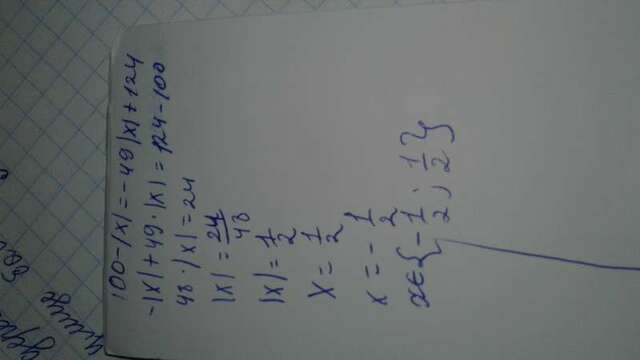 100-|x|=-49|x|+124
-|x|+49·|x|=124-100
48·|x|=24
|x|=24/48
|x|=1/2
x=1/2
x=-1/2
x∈{-1/2; 1/2}